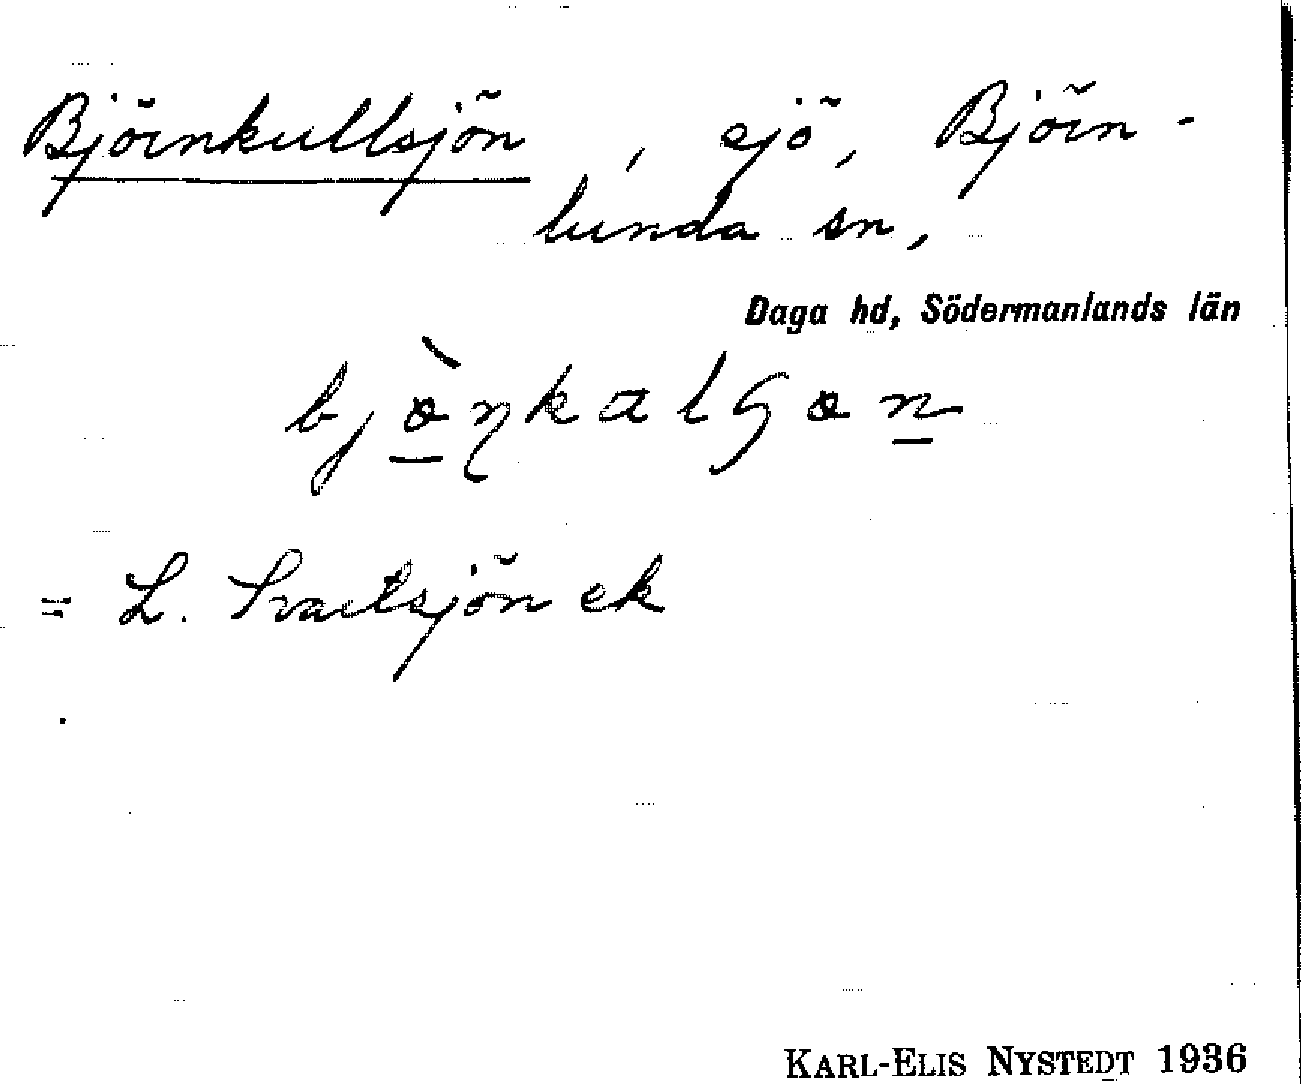 Björnkullsjön, sjö, Björn-
lunda sn,
Daga hd, Södermanlands län
= L. Svartsjön ek
KARL-ELIS NYSTEDT 1936